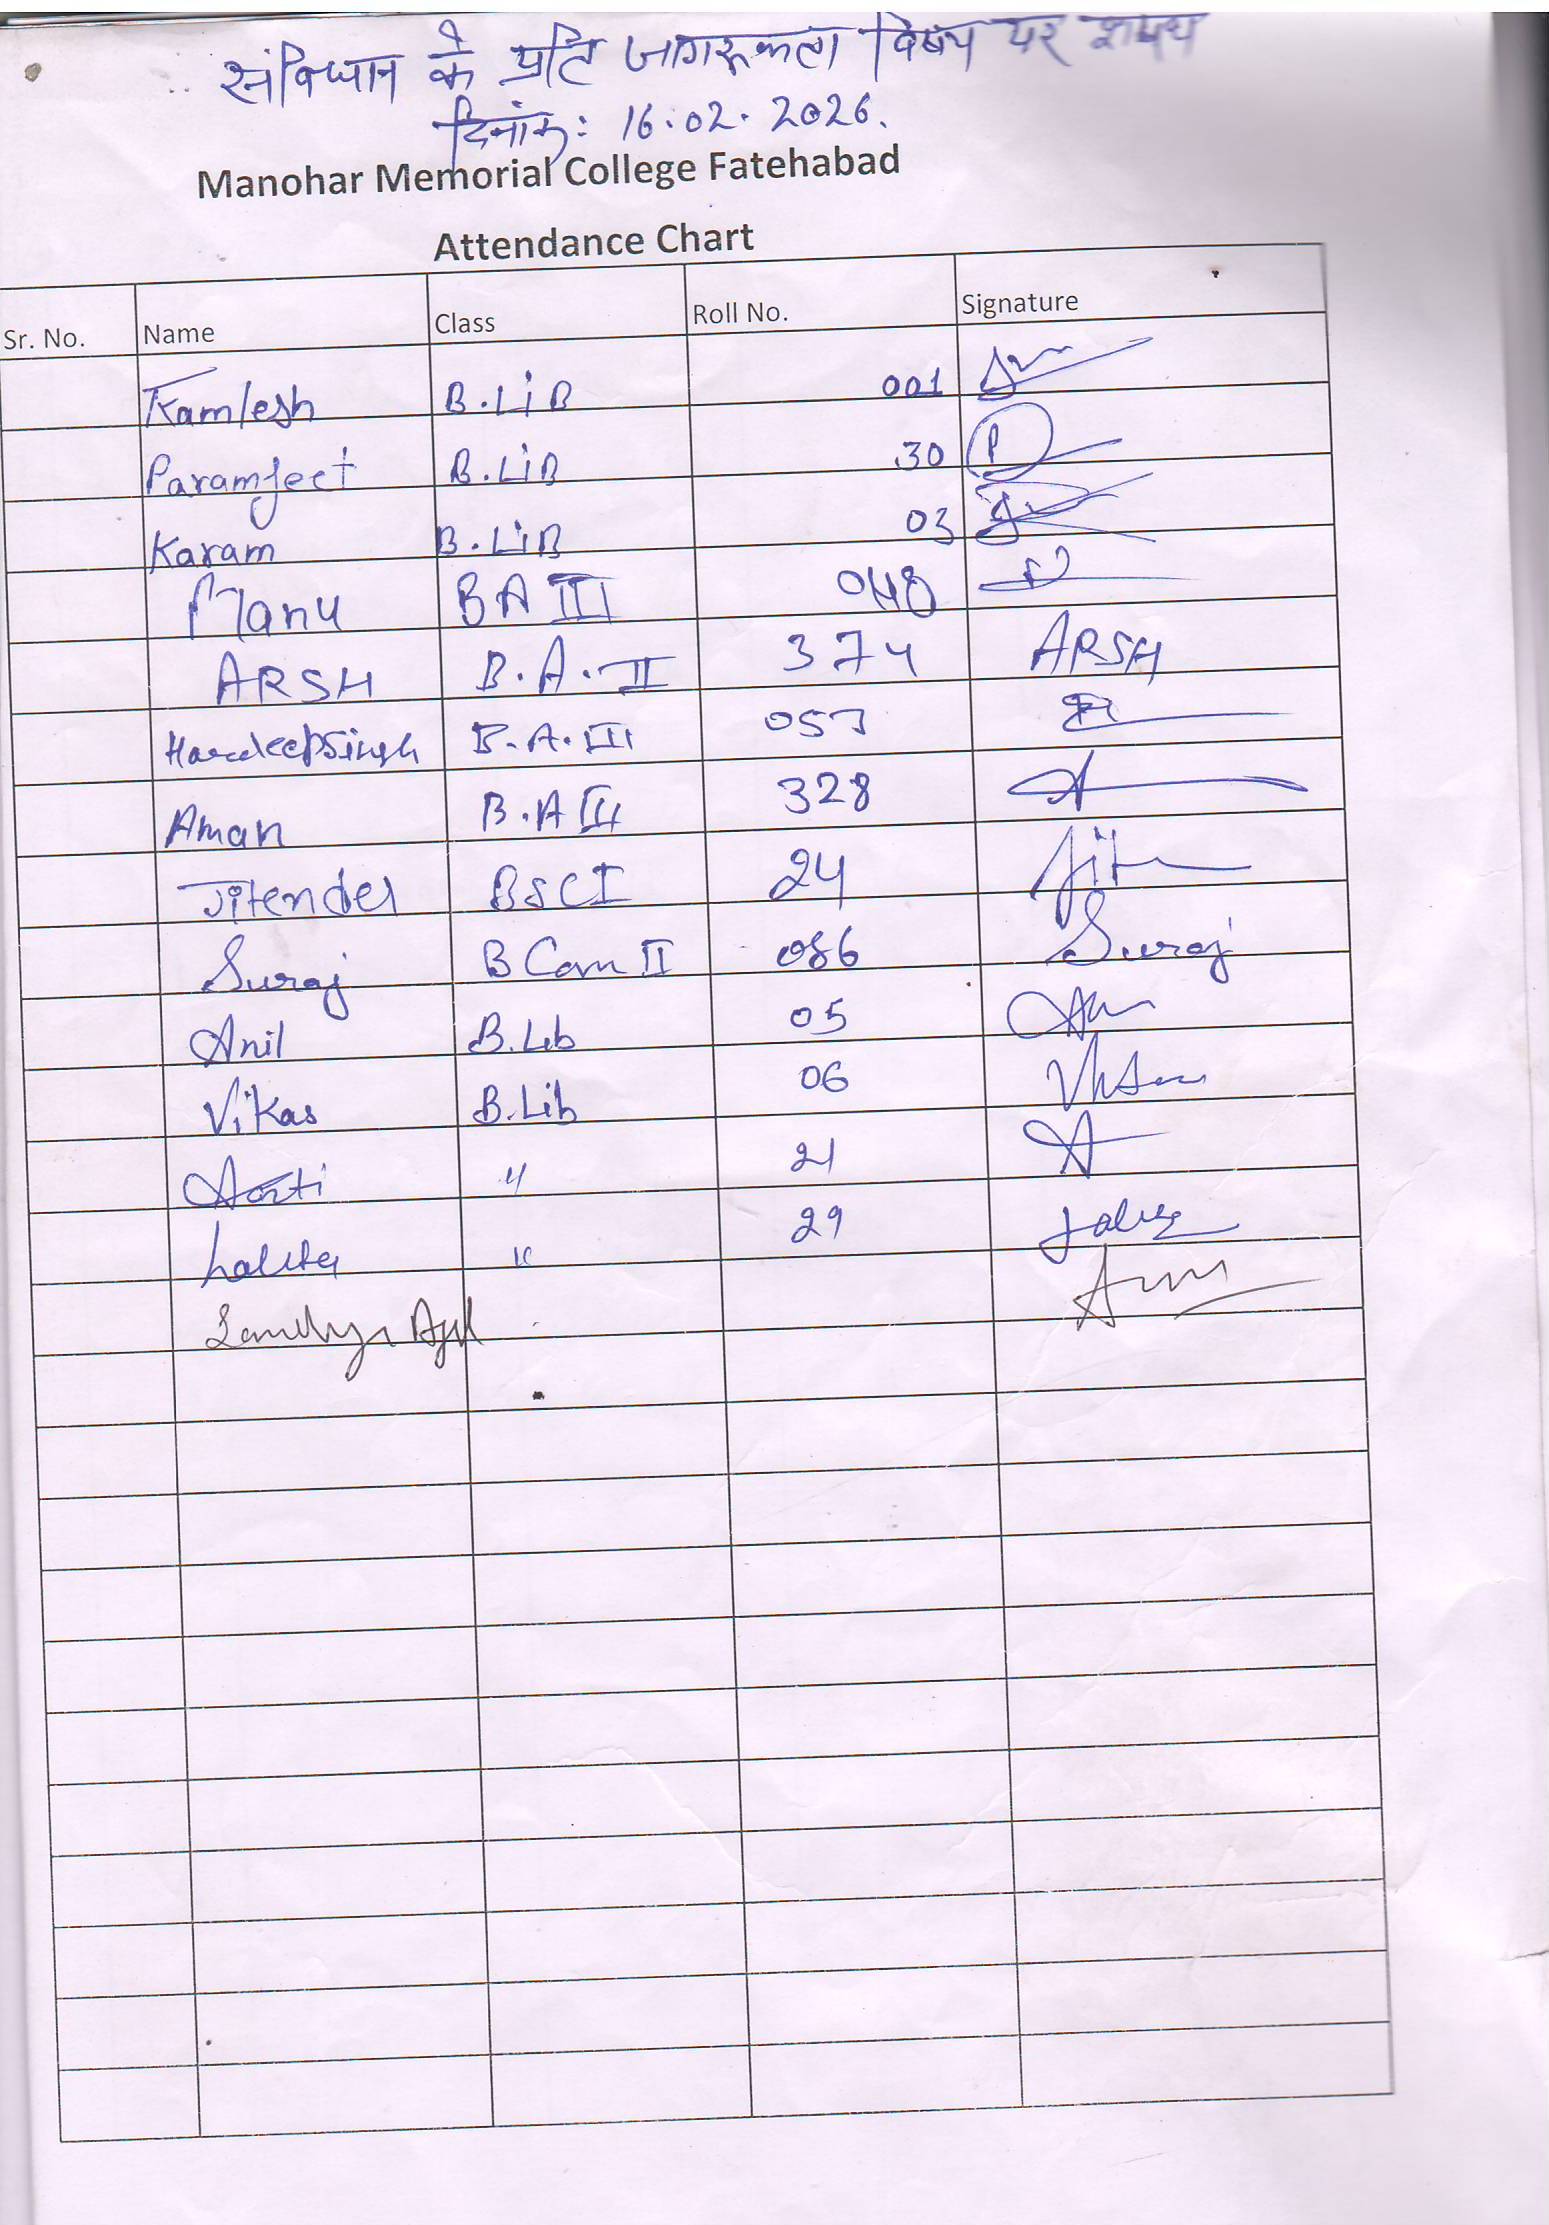 संविधान के प्रति जागरूकता विषय पर शपथ
दिनांक: 16.02.2026.
Manohar Memorial College Fatehabad
Attendance Chart
Sr. No. Name Class Roll No. Signature
Kamlesh B.LiB 001
Paramjeet B.LiB 30 P
Karam B.LiB 03
Manu BA III 048
ARSH B.A.II 374 ARSH
Hardeepsingh B.A.III 057
Aman B.A III 328
Jitender BSCI 24
Suraj B Com II 086 Suraj
Anil B.Lib 05
Vikas B.Lib 06
Aarti " 21
Lalita " 29